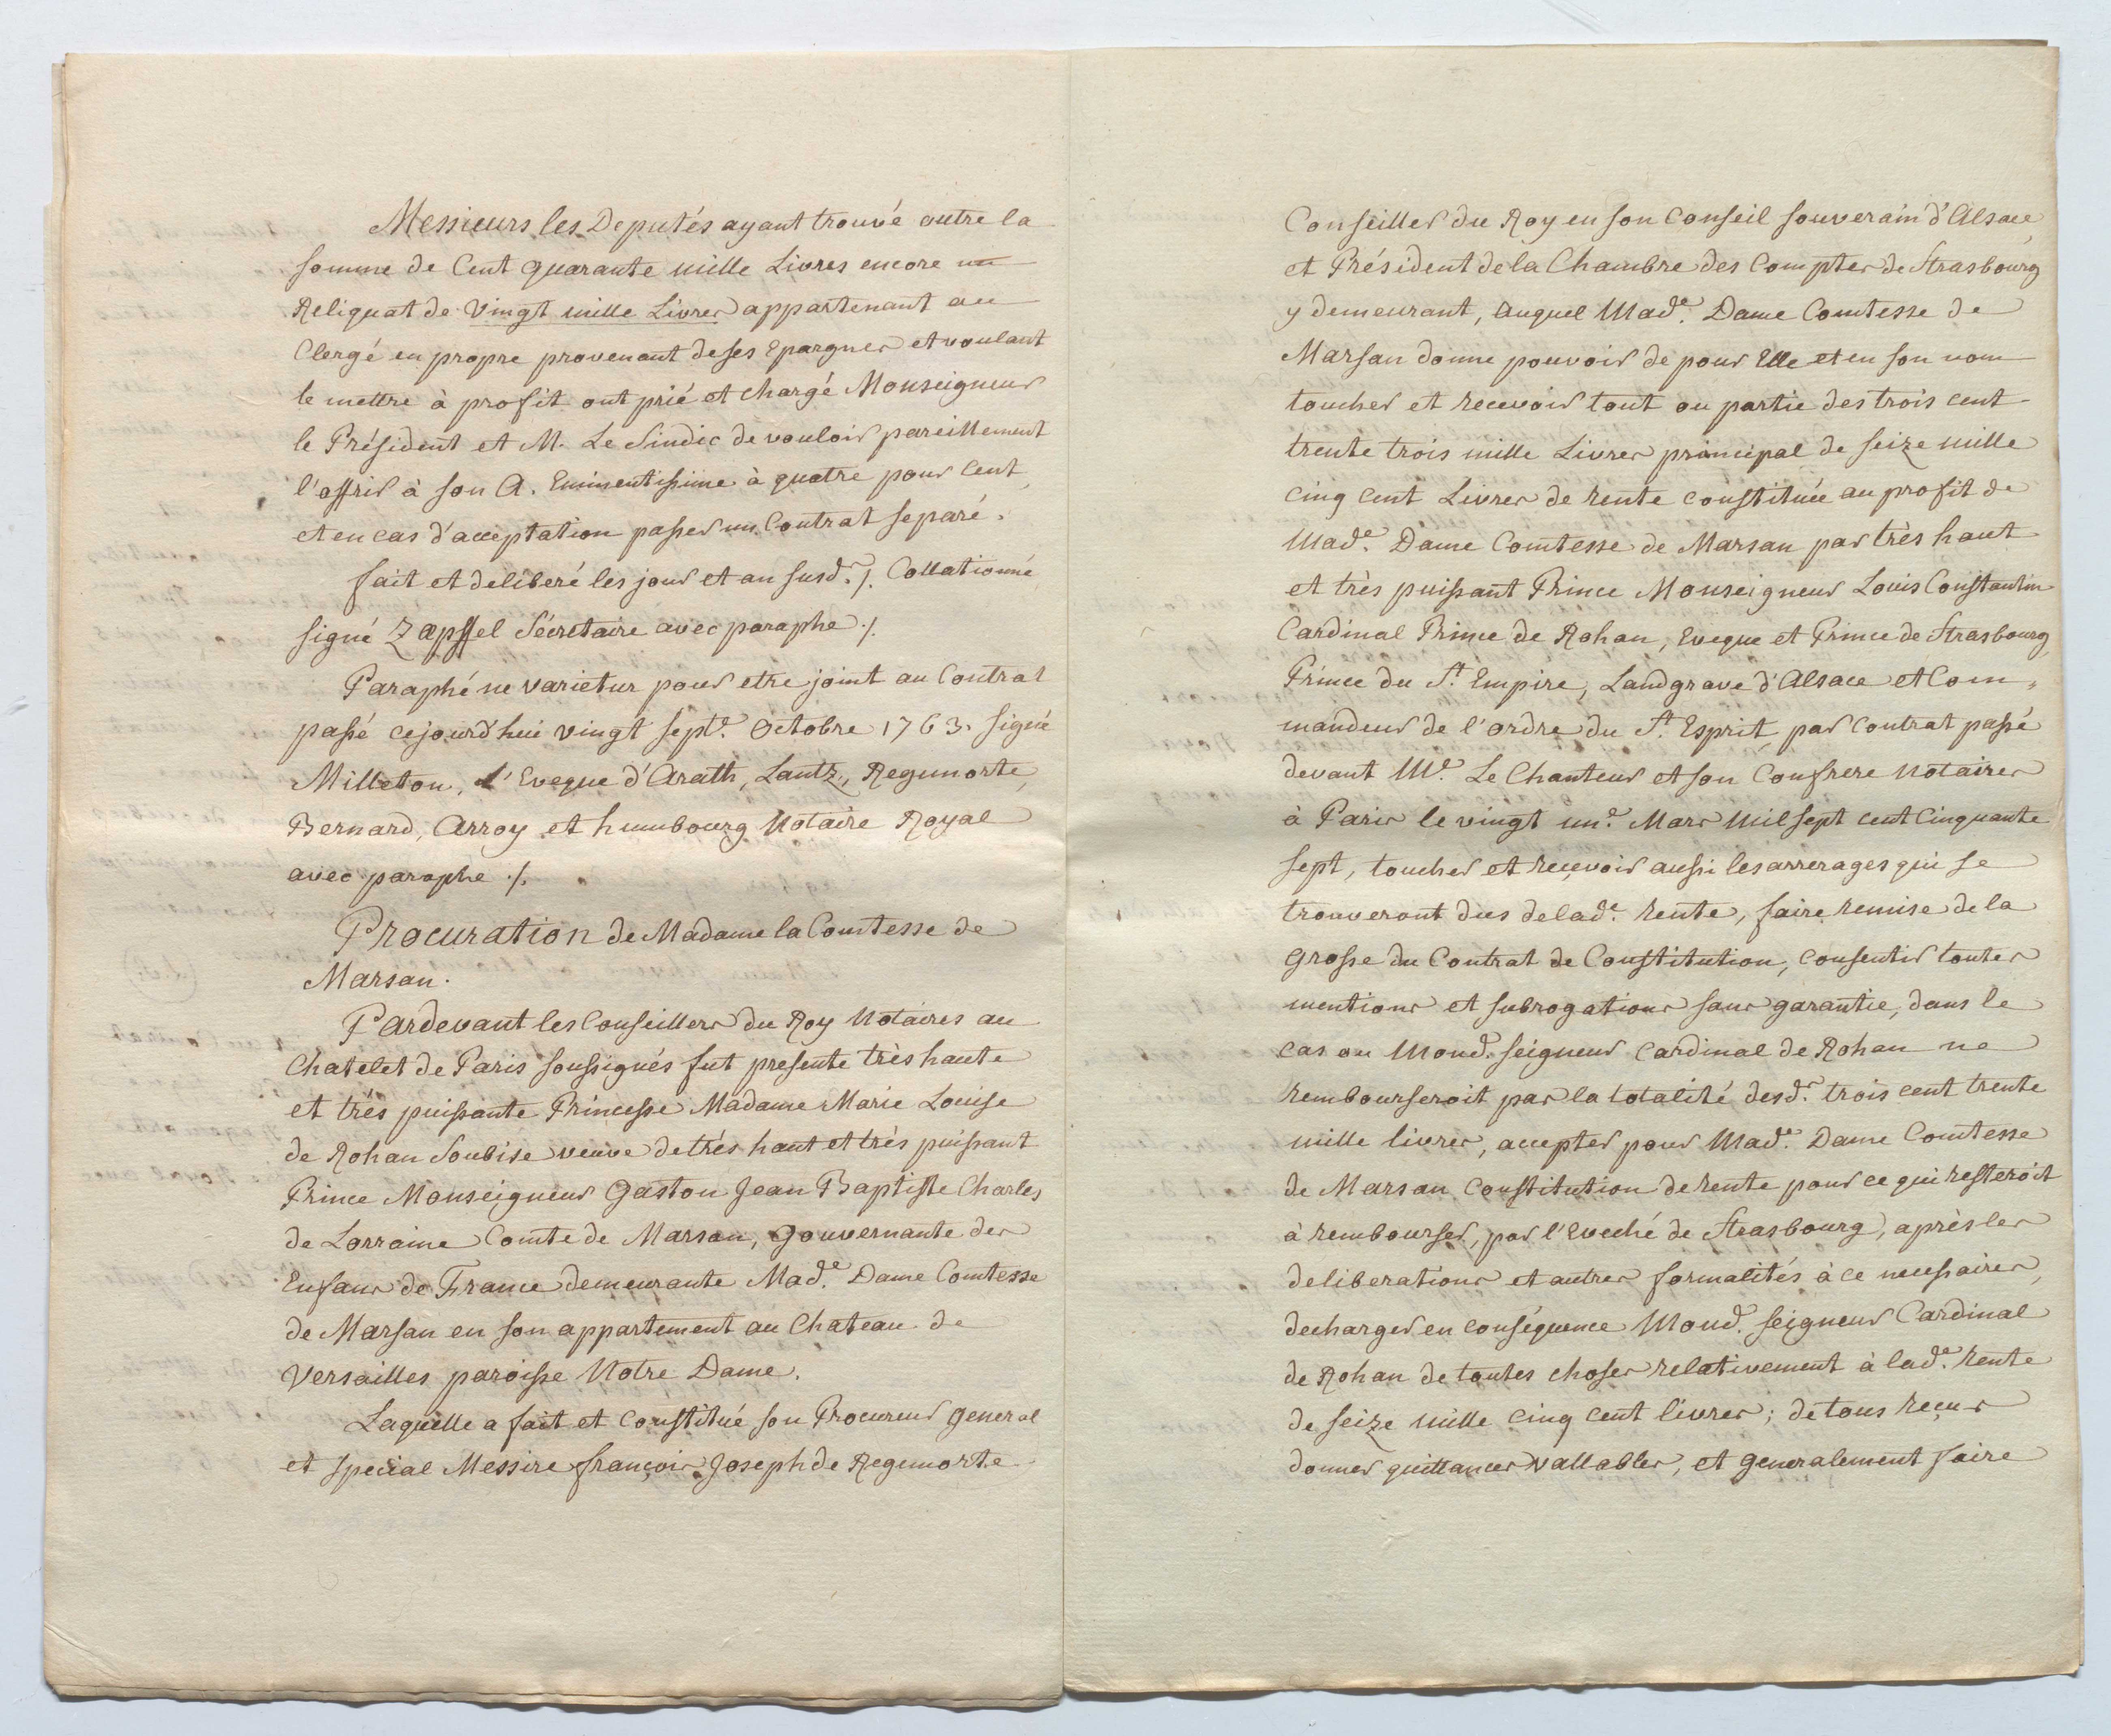 Messieurs les Deputés ayant trouvé outre la
somme de Cent quarante mille Livres encore un
Reliquat de Vingt mille Livres appartenant au
Clergé en propre provenant de ses Epargnes et voulant
le mettre à profit ont prié et chargé Monseigneur
le Président et M. Le Sindic de vouloir pareillement
l'offrir à son A. Eminentissime à quatre pour Cent,
et en cas d'acceptation passer un Contrat separé.
fait et deliberé les jour et an susd.s /. Collationné
signé Zæpffel Sécretaire avec paraphe ./.
Paraphé ne varietur pour etre joint au Contrat
passé cejourd'hui vingt sept.e Octobre 1763. signé
Milleton, L'Eveque d'Arath, Lantz, Regemorte,
Bernard, Arroy et humbourg Notaire Royal
avec paraphe ./.
Procuration de Madame la Comtesse de
Marsan.
Pardevant les Conseillers du Roy Notaires au
Chatelet de Paris soussignés fut presente très haute
et trés puissante Princesse Madame Marie Louise
de Rohan Soubise veuve de trés haut et très puissant
Prince Monseigneur Gaston Jean Baptiste Charles
de Lorraine Comte de Marsan, Gouvernante des
Enfans de France demeurante Mad.e Dame Comtesse
de Marsan en son appartement au Chateau de
Versailles paroisse Notre Dame.
Laquelle a fait et constitué son Procureur general
et special Messire françois Joseph de Regemorte
Conseiller du Roy en son Conseil souverain d'Alsace,
et Président de la Chambre des Comptes de Strasbourg
y demeurant, auquel Mad.e Dame Comtesse de
Marsan donne pouvoir de pour Elle et en son nom
toucher et recevoir tout ou partie des trois cent
trente trois mille Livres principal de seize mille
cinq cent Livres de rente constituée au profit de
Mad.e Dame Comtesse de Marsan par très haut
et très puissant Prince Monseigneur Louis Constantin
Cardinal Prince de Rohan, Eveque et Prince de Strasbourg,
Prince du S.t Empire, Landgrave d'Alsace et Com„
mandeur de l'ordre du S.t Esprit, par contrat passé
devant M.e Le Chanteur et son Confrere Notaires
à Paris le vingt un.e Mars Mil sept cent Cinquante
sept, toucher et recevoir aussi les arrerages qui se
trouveront dus de lad.e rente, faire remise de la
grosse du Contrat de Constitution, consentir toutes
mentions et subrogations sans garantie, dans le
cas ou Mond. seigneur Cardinal de Rohan ne
rembourseroit pas la totalité desd.s trois cent trente
mille livres, accepter pour Mad.e Dame Comtesse
de Marsan Constitution de rente pour ce qui resteroit
à rembourser, par l'Eveché de Strasbourg, après les
deliberations et autres formalités à ce necessaires,
decharger en conséquence Mond. seigneur Cardinal
de Rohan de toutes choses relativement à lad.e rente
de seize mille cinq cent livres; de tous reçus
donner quittances vallables, et generalement faire